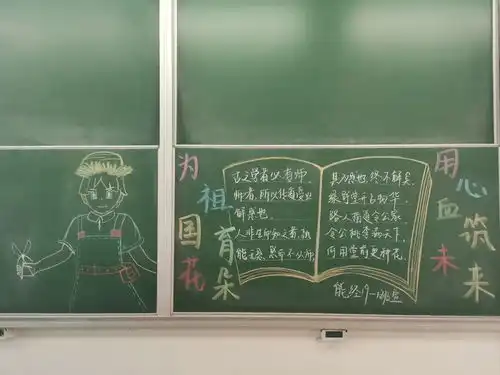 为祖国育花朵
古之学者必有师。
师者，所以传道受业
解惑也。
人非生而知之者，孰
能无惑，惑而不从师
其为惑也，终不解矣。
绿野堂开占物华，
路人指道令公家。
令公桃李满天下，
何用堂前更种花。
能经19-1班
用心血筑未来